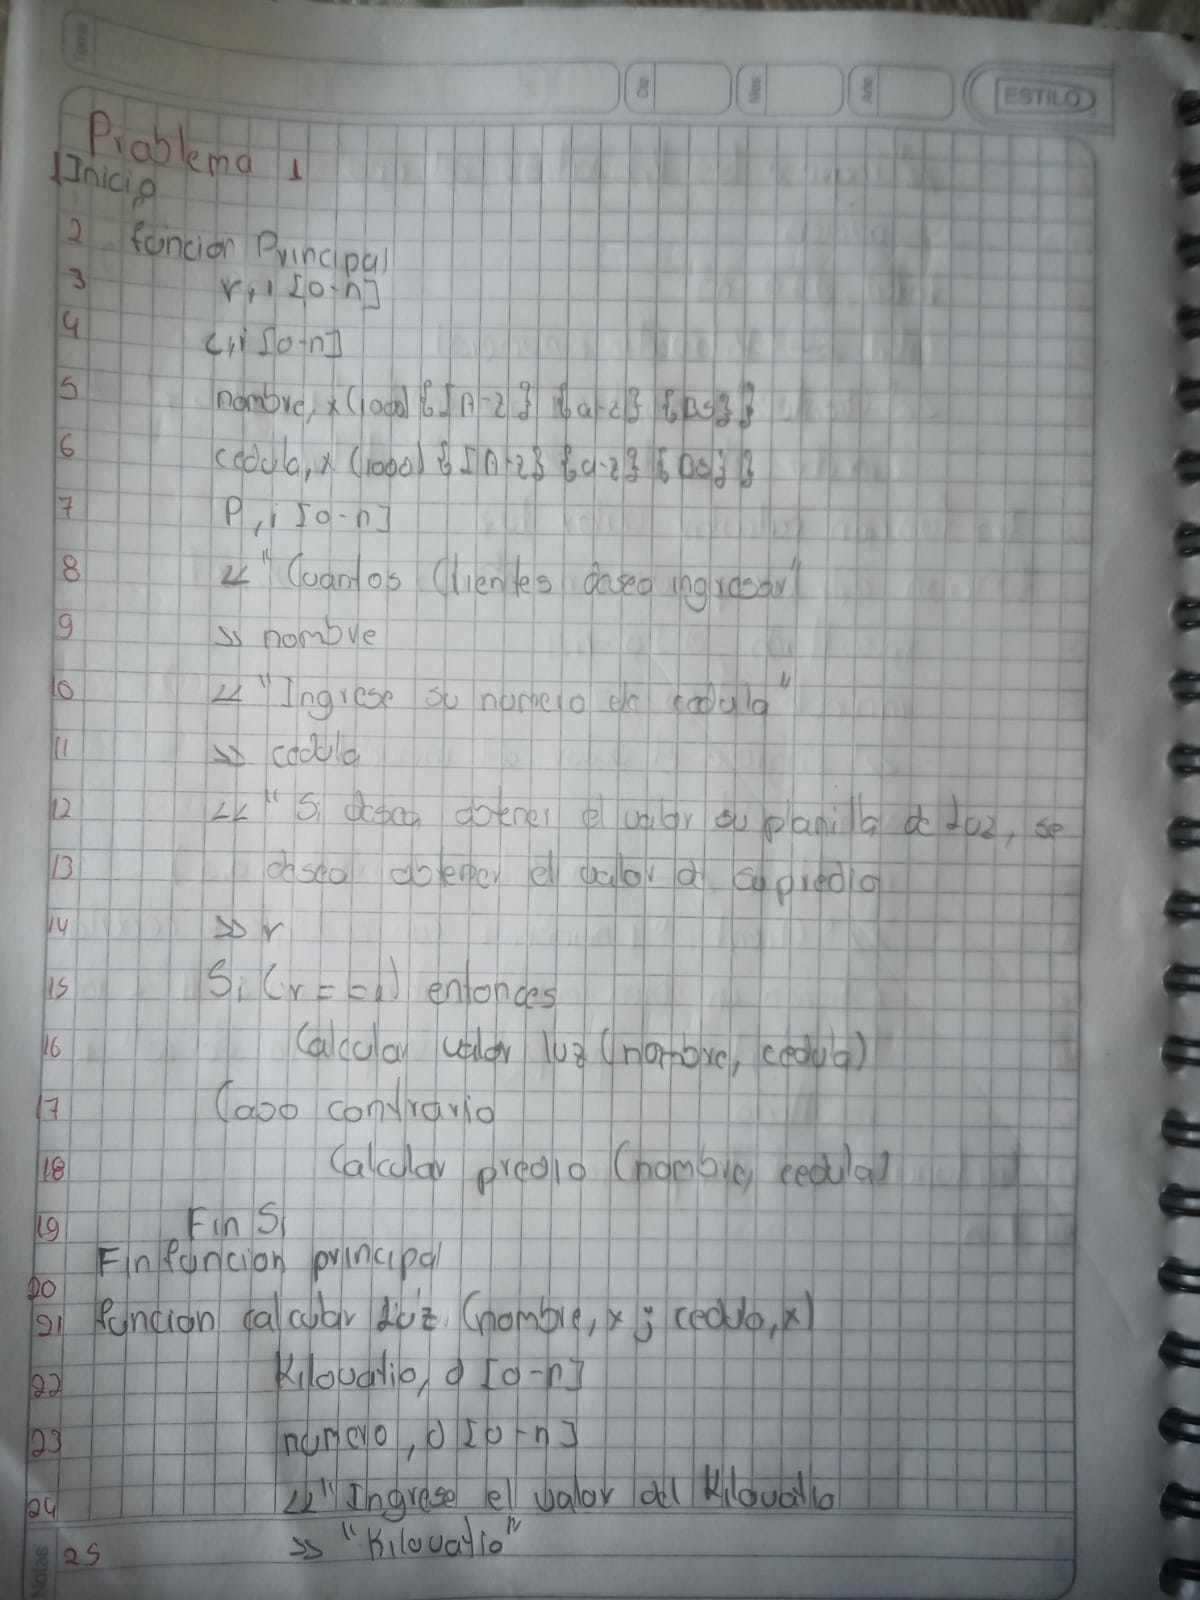 Tema
Dia
Mes
Año
ESTILO
Problema 1
1 Inicio
2 funcion Principal
3 r, i [0-n]
4 c, i [0-n]
5 nombre, x (1000) { [A-z} {a-z} {Bs} }
6 cedula, x (1000) { [A-z} {a-z} {Bs} }
7 P, i [0-n]
8 << "Cuantos Clientes deseo ingresar"
9 >> nombre
10 << "Ingrese su numero de cedula"
11 >> cedula
12 << "Si desea obtener el valor su planilla de luz, se
13 desea obtener el valor d su predio
14 >> r
15 Si (r==1) entonces
16 Calcular valor luz (nombre, cedula)
17 Caso contrario
18 Calcular predio (nombre, cedula)
19 Fin Si
20 Fin funcion principal
21 funcion calcular luz (nombre, x ; cedula, x)
22 Kilovatio, d [0-n]
23 numero, d [0-n]
24 << "Ingrese el valor del Kilovatio
25 >> "Kilovatio"
Notas